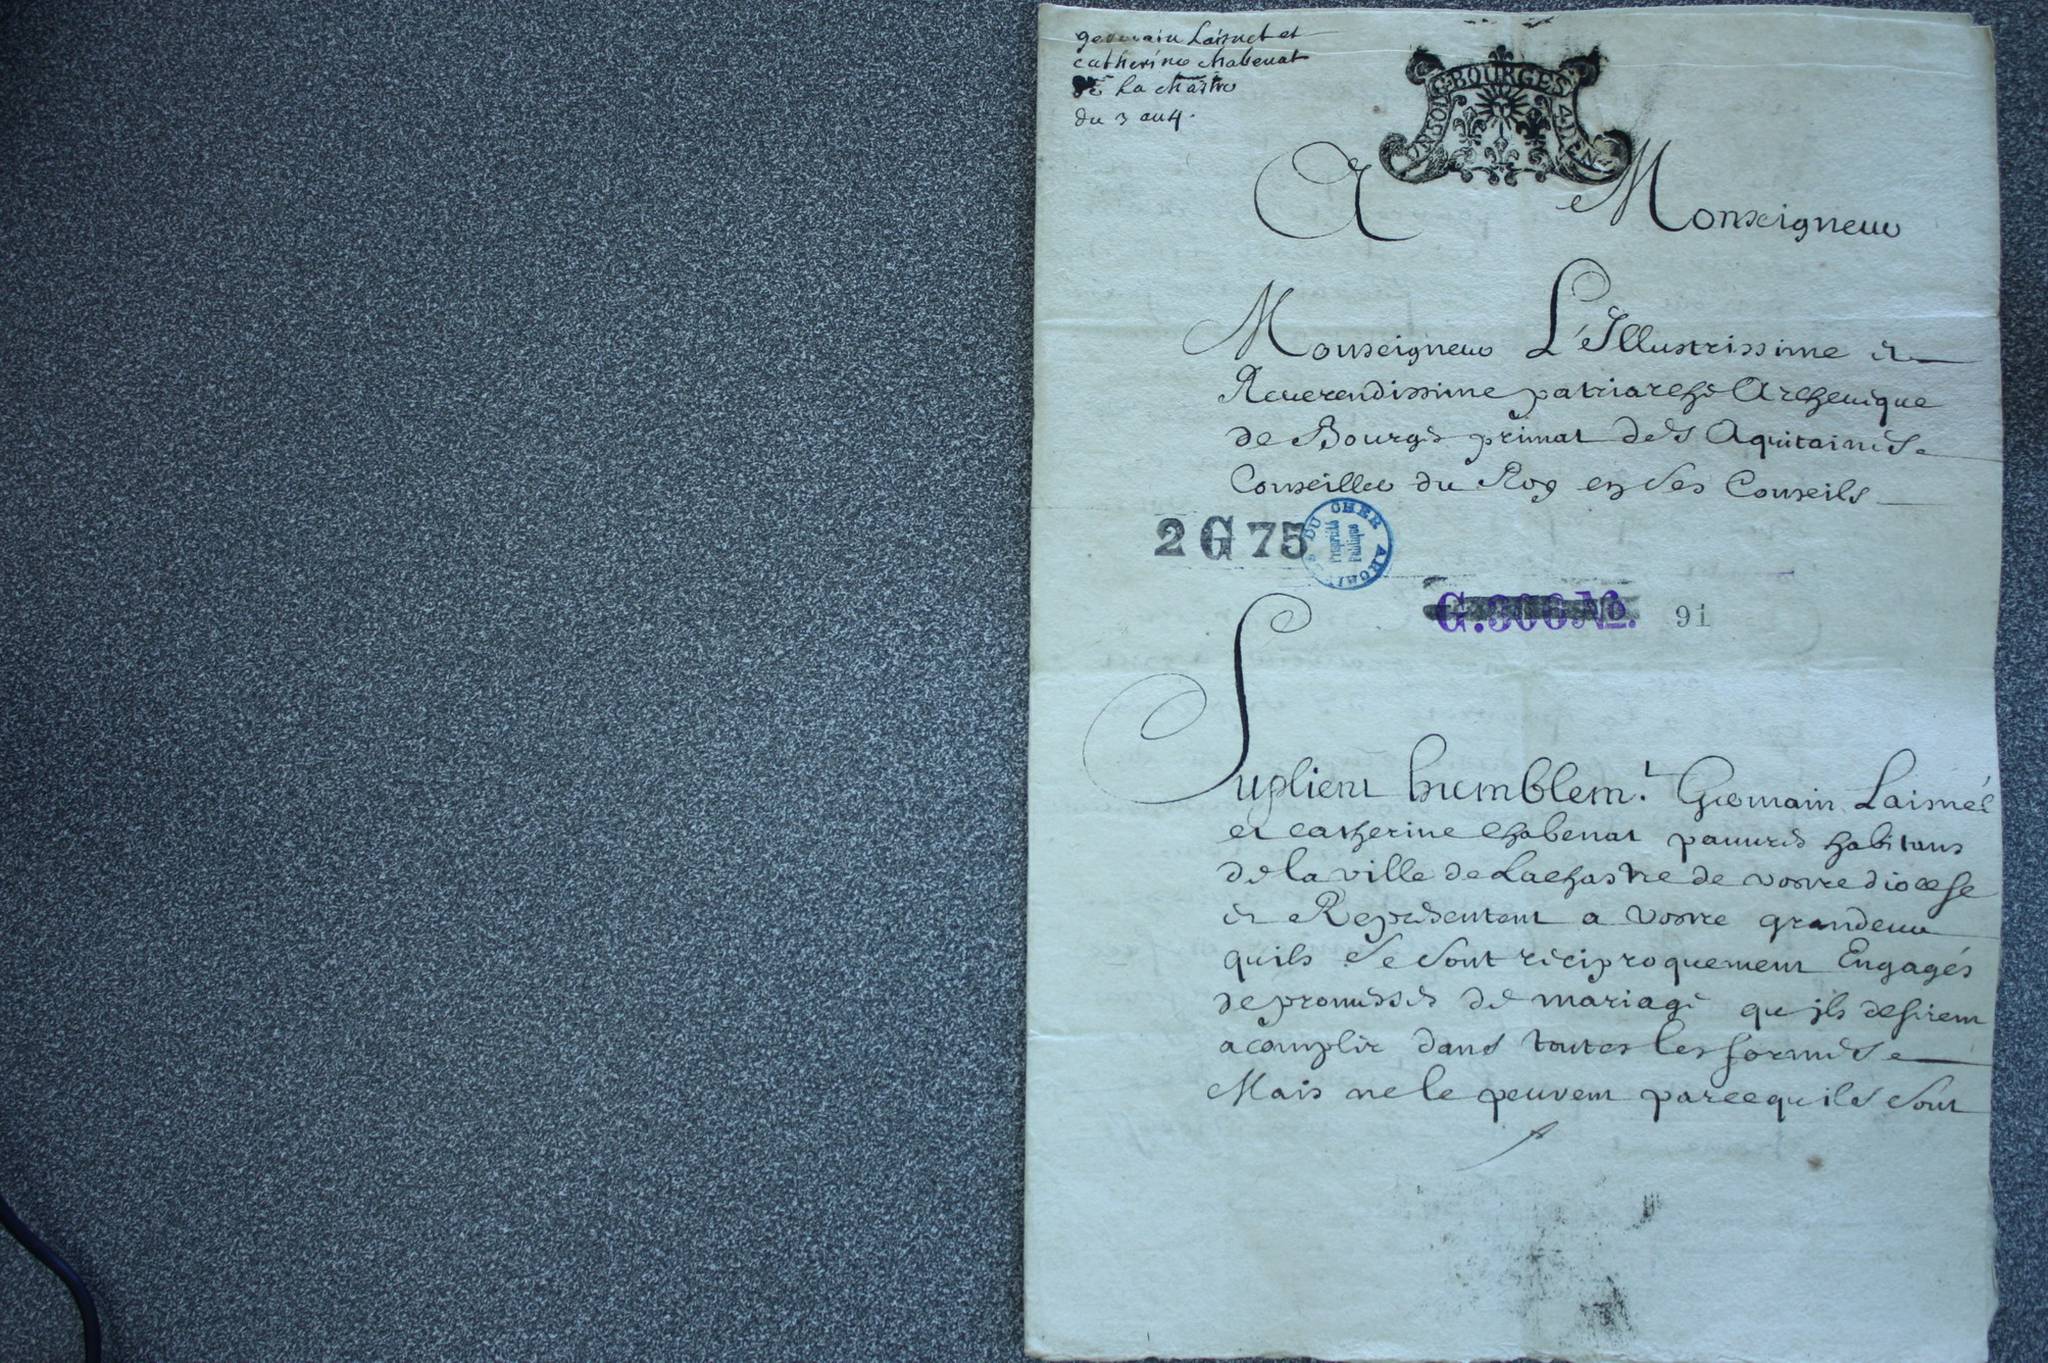 germain Laisnet et
catherine chabenat
de La chastre
du 3 au 4.
UN SOL G. BOURGES 4 DEN.
A Monseigneur
Monseigneur L'Illustrissime et
Reuerendissime patriarche Archeuique
de Bourges primat des Aquitaines
Conseiller du Roy en ses Conseils
2 G 75
DU CHER ARCHIVES
Propriété
Publique
G.306 No. 91
Suplient humblem.t Germain Laisnét
et catherine Chabenat pauures habitans
de la ville de Lachastre de vostre diocese
et Representent a vostre grandeur
quils se sont réciproquement Engagés
de promesses de mariage qu'ils desirent
acomplir dans toutes les formes
Mais ne le peuvent parcequ'ils sont